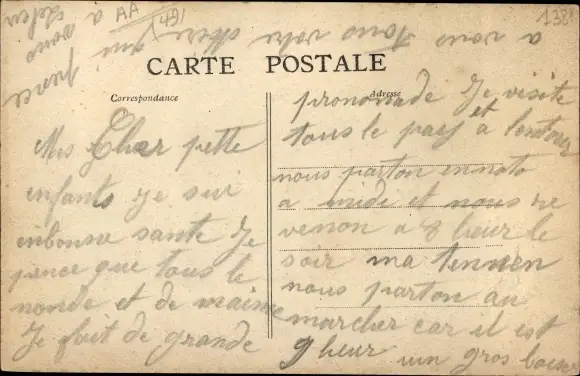 AA
491
138
CARTE POSTALE
Correspondance
Adresse
Mes Cher petite
enfants je sui
enbonne sante Je
pence que tous le
monde et de maime
Je fait de grande
promonade Je visite
tous le pay et a lentour
nous parton en noto
a midi et nous re
venon a 8 heur le
soir ma tennen
nous parton au
marcher car il est
9 heur un gros baiser
a vous tous votre mere qui
pence a vous